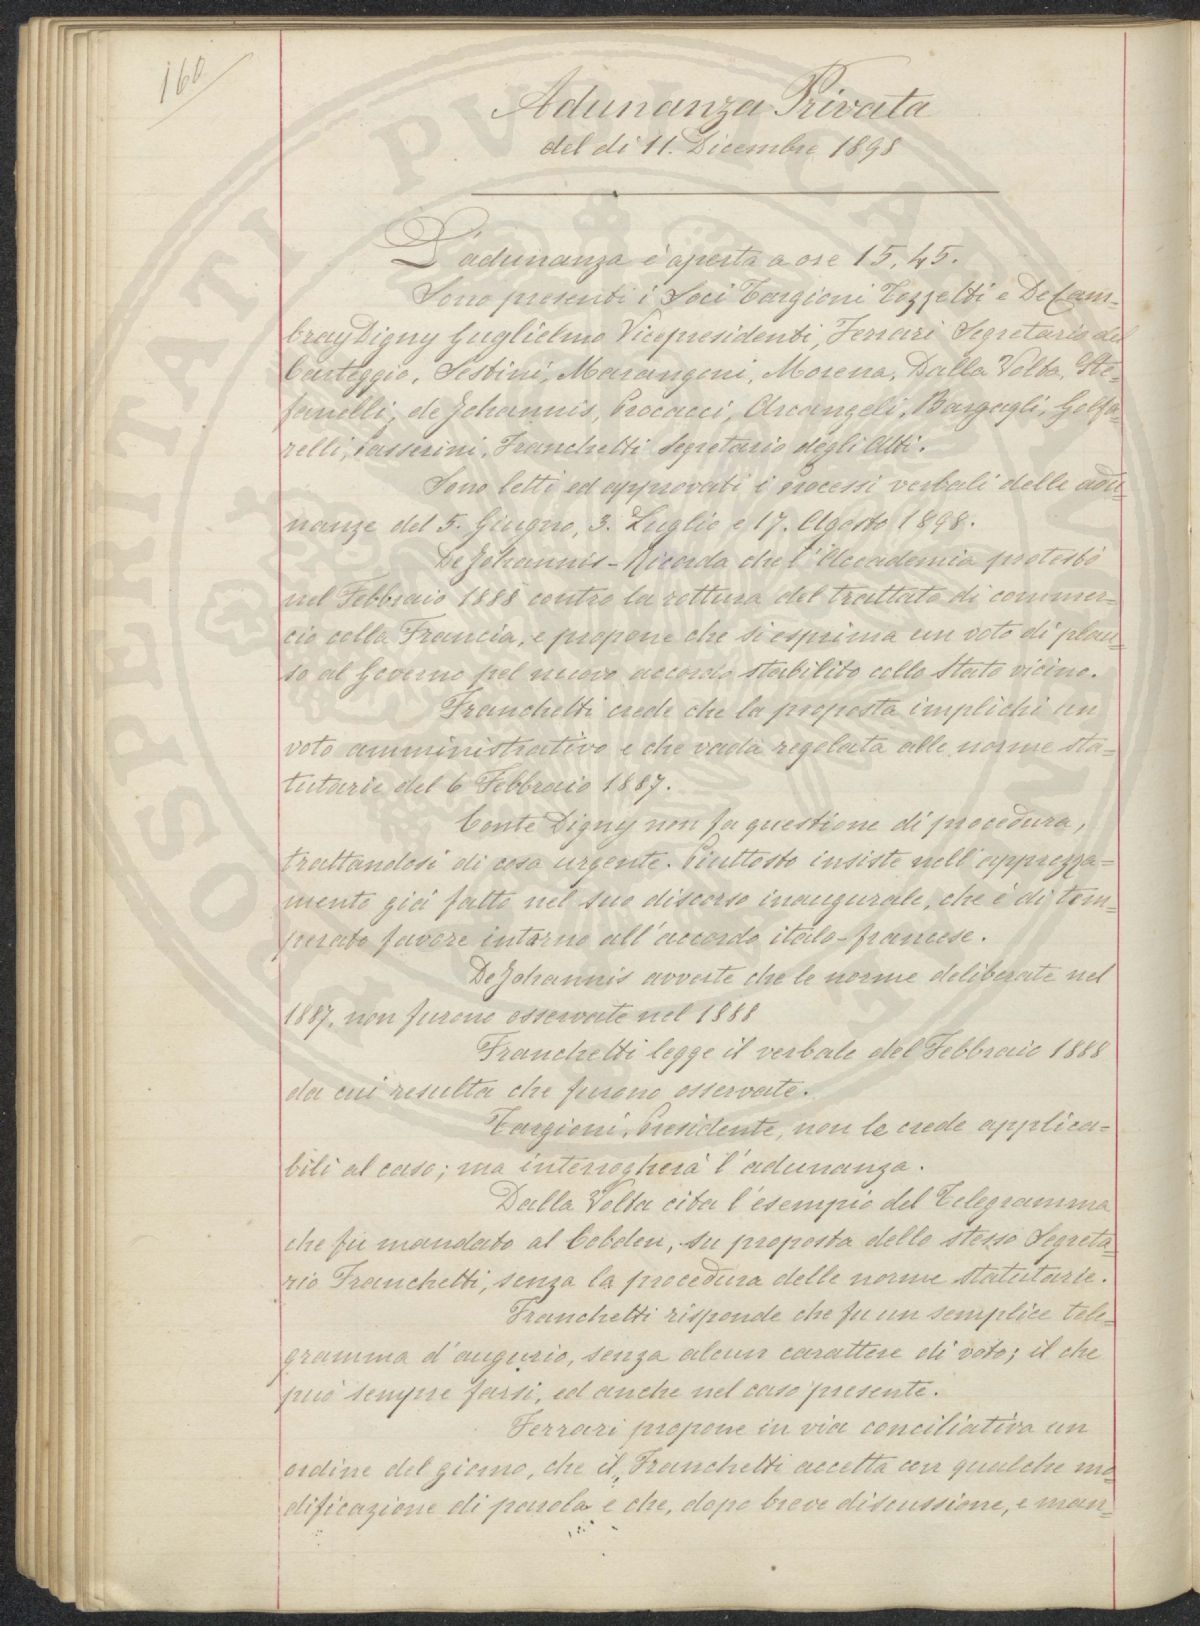 160
Adunanza Privata
del di 11. Dicembre 1898
L'adunanza è aperta a ore 15,45.
Sono presenti i Soci Targioni Tozzetti e De Cam-
bray Digny Guglielmo Vicepresidenti, Ferrari Segretario del
Carteggio, Sestini, Marangoni, Morena, Dalla Volta, Ste-
fanelli, de Johannis, Procacci, Arcangeli, Bargagli, Golfa-
relli, Passerini, Franchetti Segretario degli Atti.
Sono letti ed approvati i processi verbali delle adu-
nanze del 5. Giugno, 3. Luglio e 17. Agosto 1898.
De Johannis - Ricorda che l'Accademia protestò
nel Febbraio 1888 contro la rottura del trattato di commer-
cio colla Francia, e propone che si esprima un voto di plau-
so al Governo pel nuovo accordo stabilito collo Stato vicino.
Franchetti crede che la proposta implichi un
voto amministrativo e che vada regolata alle norme sta-
tutarie del 6 Febbraio 1887.
Conte Digny non fa questione di procedura,
trattandosi di cosa urgente. Piuttosto insiste nell'apprezza-
mento già fatto nel suo discorso inaugurale, che è di tem-
perato favore intorno all'accordo italo-francese.
De Johannis avverte che le norme deliberate nel
1887, non furono osservate nel 1888
Franchetti legge il verbale del Febbraio 1888
da cui resulta che furono osservate.
Targioni, Presidente, non le crede applica-
bili al caso; ma interrogherà l'adunanza.
Dalla Volta cita l'esempio del Telegramma
che fu mandato al Cobden, su proposta dello stesso Segreta-
rio Franchetti, senza la procedura delle norme statutarie.
Franchetti risponde che fu un semplice tele-
gramma d'augurio, senza alcun carattere di voto; il che
può sempre farsi, ed anche nel caso presente.
Ferrari propone in via conciliativa un
ordine del giorno, che il Franchetti accetta con qualche mo-
dificazione di parola e che, dopo breve discussione, e man-
PROSPERITATI PVBLICAE